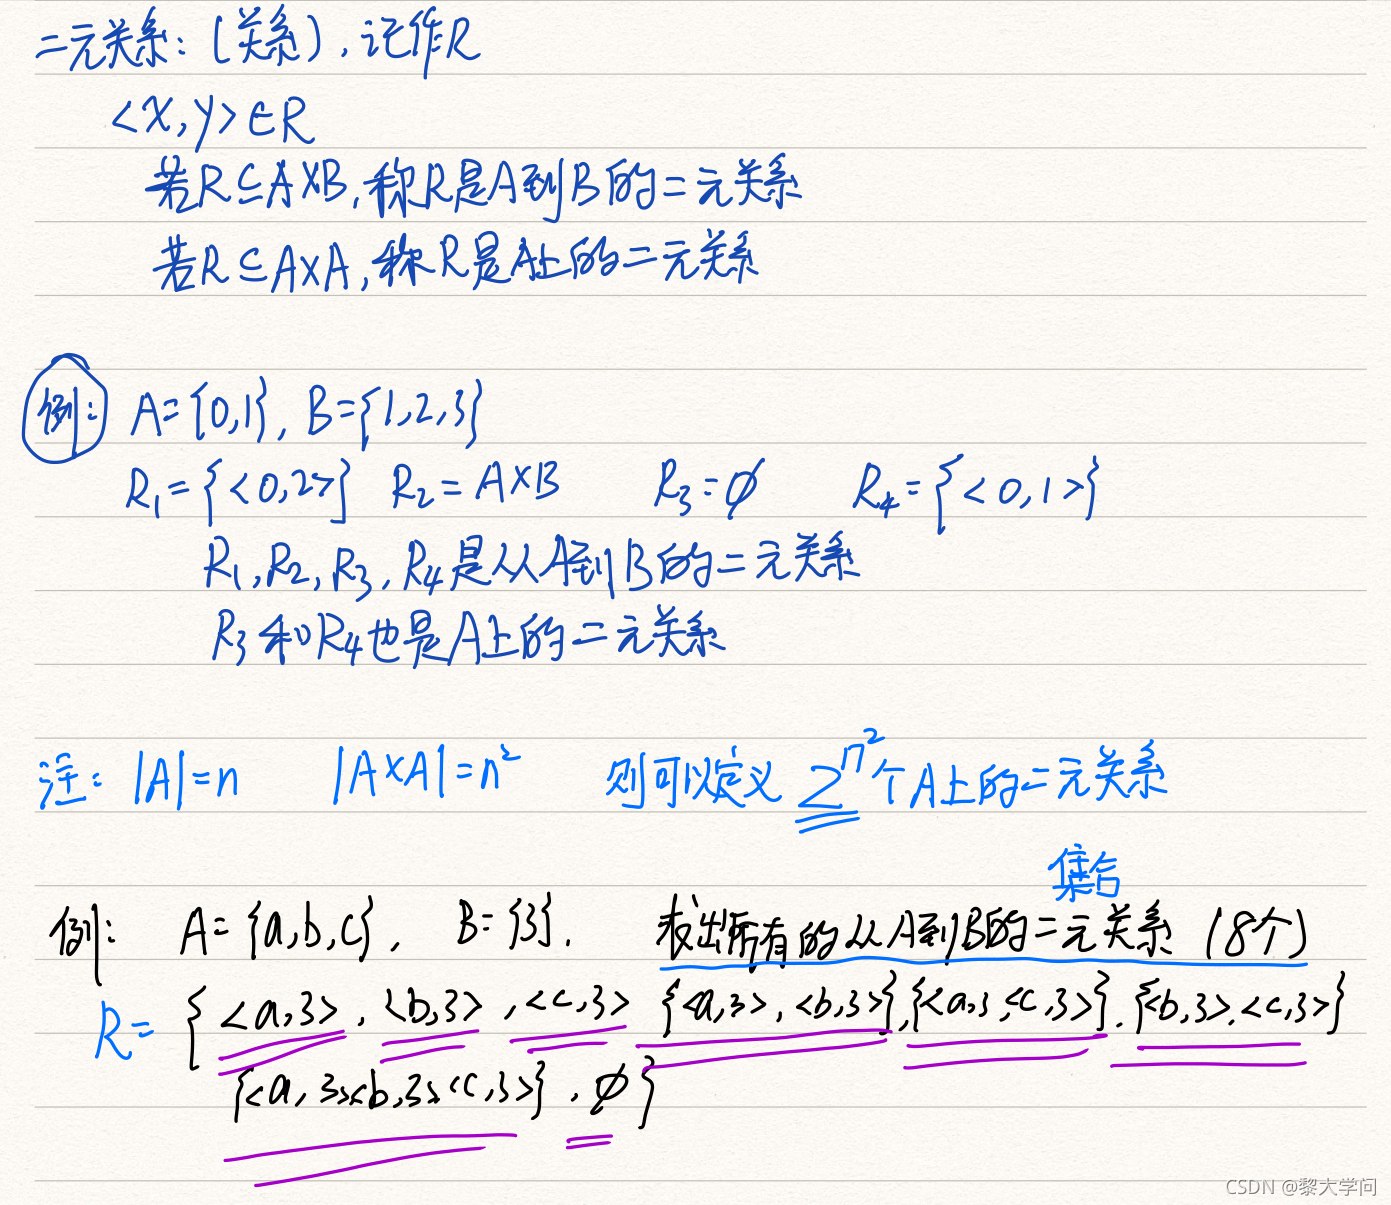 二元关系:(关系),记作R
<X,y>∈R
若R⊆A×B,称R是A到B的二元关系
若R⊆A×A,称R是A上的二元关系
例: A={0,1}, B={1,2,3}
R₁={<0,2>} R₂=A×B R₃=∅ R₄={<0,1>}
R₁,R₂,R₃,R₄是从A到B的二元关系
R₃和R₄也是A上的二元关系
注: |A|=n |A×A|=n² 则可以定义 2^n² 个A上的二元关系
集合
例: A={a,b,c}, B={3}, 求出所有的从A到B的二元关系 (8个)
R= { <a,3>, <b,3>, <c,3> {<a,3>, <b,3>}, {<a,3,<c,3>}. {<b,3>,<c,3>}
{<a,3><b,3><c,3>}, ∅ }
CSDN @黎大学问